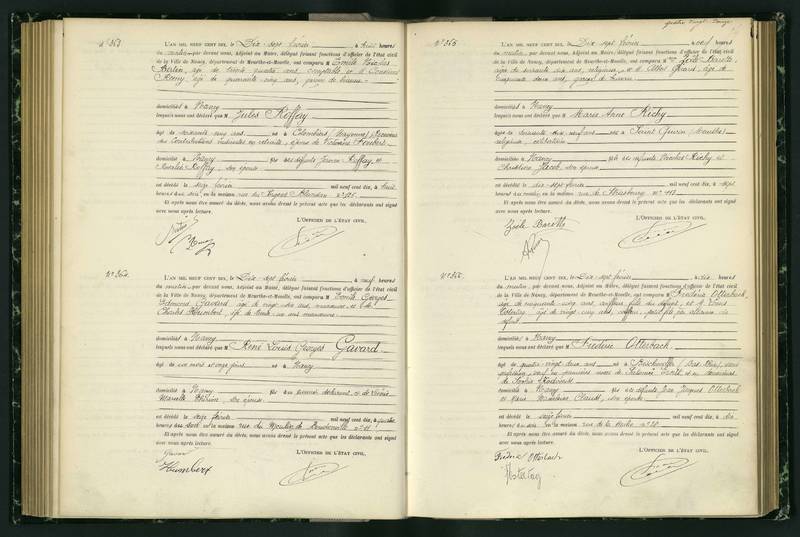 quatre vingt douze
N° 363
L'AN MIL NEUF CENT DIX, le Dix sept février à huit heures
du matin, par devant nous, Adjoint au Maire, délégué faisant fonctions d'officier de l'état civil
de la Ville de Nancy, département de Meurthe-et-Moselle, ont comparu M Emile Nicolas
âgé de trente quatre ans, comptable et M
âgé de quarante cinq ans, garçon de bureau
domiciliés à Nancy
lesquels nous ont déclaré que M Jules Roffay
âgé de soixante cinq ans né à Colombiers (Mayenne)
des Contributions indirectes en retraite, époux de Victorine
domicilié à Nancy fils de
Roffay, son épouse
est décédé le seize février mil neuf cent dix, à huit
heures du soir, en la maison rue du Sergent Blandan n°
Et après nous être assuré du décès, nous avons dressé le présent acte que les déclarants ont signé
avec nous après lecture.
L'OFFICIER DE L'ÉTAT CIVIL,
N° 364
L'AN MIL NEUF CENT DIX, le Dix sept février à neuf heures
du matin, par devant nous, Adjoint au Maire, délégué faisant fonctions d'officier de l'état civil
de la Ville de Nancy, département de Meurthe-et-Moselle, ont comparu M Emile Georges
Edmond Gavard, âgé de vingt six ans, manœuvre et M
Charles Humbert, âgé de trente ans, manœuvre
domiciliés à Nancy
lesquels nous ont déclaré que M René Louis Georges Gavard
âgé de six mois et onze jours né à Nancy
domicilié à Nancy fils du premier déclarant et de
Marcelle son épouse
est décédé le seize février mil neuf cent dix, à quatre
heures du soir en la maison rue du Moulin de Boudonville n°
Et après nous être assuré du décès, nous avons dressé le présent acte que les déclarants ont signé
avec nous après lecture.
L'OFFICIER DE L'ÉTAT CIVIL,
Gavard
Humbert
L'AN MIL NEUF CENT DIX, le Dix sept février à neuf heures
du matin, par devant nous, Adjoint au Maire, délégué faisant fonctions d'officier de l'état civil
de la Ville de Nancy, département de Meurthe-et-Moselle, ont comparu M Zoële Barotte
âgée de soixante dix ans, religieuse et M Albert âgé de
cinquante deux ans, garçon de bureau
domiciliés à Nancy
lesquels nous ont déclaré que M Marie Anne Richy
âgée de soixante dix neuf ans née à Saint Quirin (Meurthe)
religieuse, célibataire
domiciliée à Nancy fille de défunts Nicolas Richy et
Christine Jacob, son épouse
est décédée le dix sept février mil neuf cent dix, à sept
heures du matin, en la maison rue de Strasbourg n°
Et après nous être assuré du décès, nous avons dressé le présent acte que les déclarants ont signé
avec nous après lecture.
L'OFFICIER DE L'ÉTAT CIVIL,
Zoële Barotte
L'AN MIL NEUF CENT DIX, le Dix sept février à dix heures
du matin, par devant nous, Adjoint au Maire, délégué faisant fonctions d'officier de l'état civil
de la Ville de Nancy, département de Meurthe-et-Moselle, ont comparu M Frédéric Otterbach,
âgé de cinquante cinq ans, coiffeur, fils du défunt, et M Louis
Ostertag, âgé de vingt cinq ans, coiffeur, petit fils par alliance du
défunt
domiciliés à Nancy
lesquels nous ont déclaré que M Frédéric Otterbach
âgé de quatre-vingt deux ans né à Bischwiller (Bas Rhin), sans
profession, veuf en premières noces de Salomé et en secondes
de Sophie
domicilié à Nancy fils de défunts Jean Jacques Otterbach
et Marie Claudt, son épouse
est décédé le seize février mil neuf cent dix, à dix
heures du soir, en la maison rue de la Hache n°
Et après nous être assuré du décès, nous avons dressé le présent acte que les déclarants ont signé
avec nous après lecture.
L'OFFICIER DE L'ÉTAT CIVIL,
Frédéric Otterbach
Ostertag